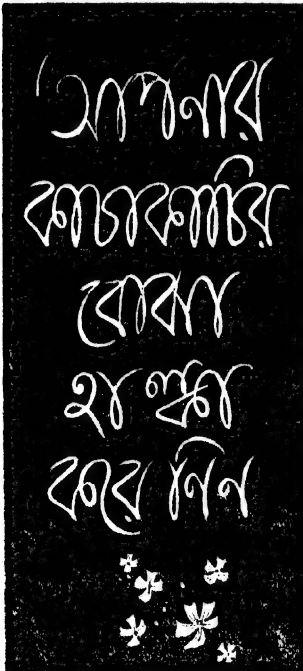 আপনার
কাচাকাচির
বোঝা
হাল্কা
করে নিন